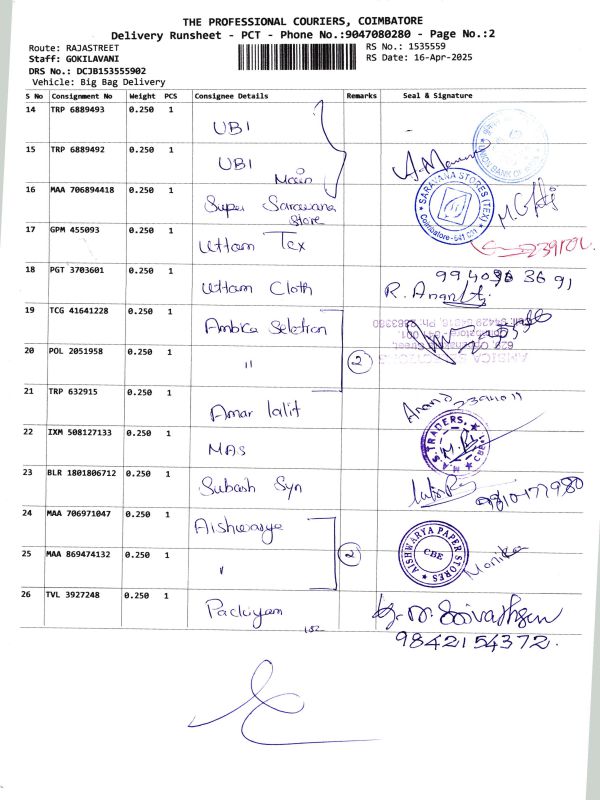 THE PROFESSIONAL COURIERS, COIMBATORE
Delivery Runsheet - PCT - Phone No.:9047080280 - Page No.:2
Route: RAJASTREET
RS No.: 1535559
Staff: GOKILAVANI
RS Date: 16-Apr-2025
DRS No.: DCJB153555902
Vehicle: Big Bag Delivery
S No Consignment No Weight PCS Consignee Details Remarks Seal & Signature
14 TRP 6889493 0.250 1 UBI
15 TRP 6889492 0.250 1 UBI Main
16 MAA 706894418 0.250 1 Super Saravana Store
SARAVANA STORES (TEX)
Coimbatore-641 001
17 GPM 455093 0.250 1 Uttam Tex
18 PGT 3703601 0.250 1 Uttam Cloth
R. Anand
19 TCG 41641228 0.250 1 Ambica Seletion
20 POL 2051958 0.250 1 " 2
21 TRP 632915 0.250 1 Amar lalit
Anand
22 IXM 508127133 0.250 1 MAS
A.S. TRADERS
CBE-1
23 BLR 1801806712 0.250 1 Subash Syn
24 MAA 706971047 0.250 1 Aishwarye
AISHWARYA PAPER STORES
CBE
25 MAA 869474132 0.250 1 " 2
Monika
26 TVL 3927248 0.250 1 Packiyam
9842154372.